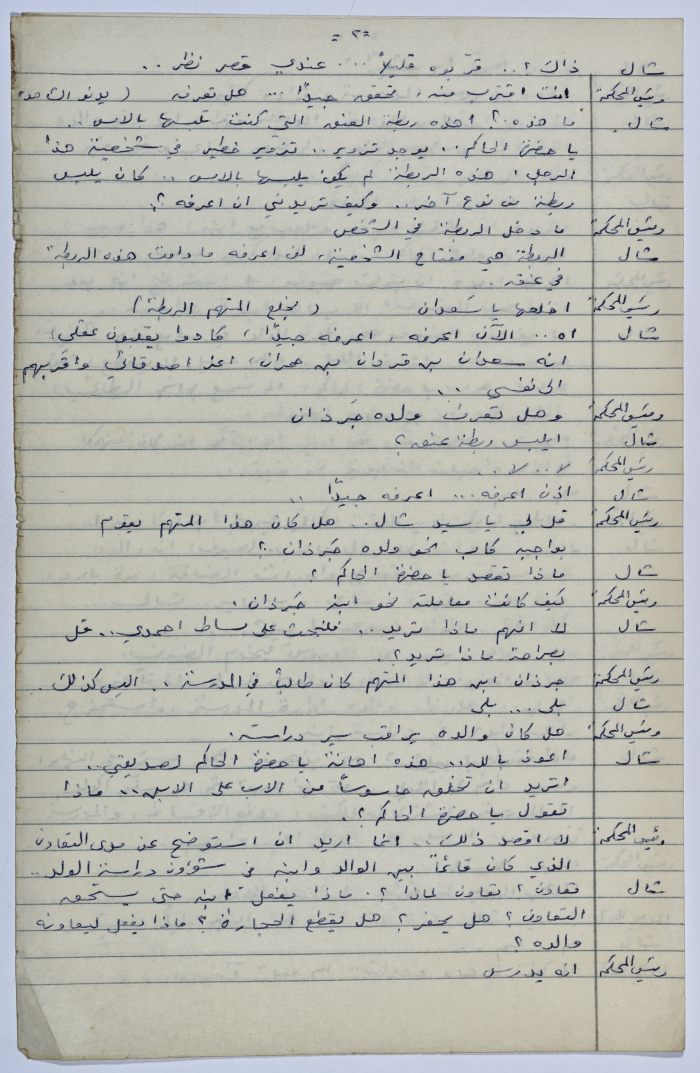 = ٢ =
شال ذاك ؟ .. قرّبوه قليلاً ... عندي قصر نظر ..
رئيس المحكمة انت اقترب منه، تحقق جيداً ... هل تعرفه ( يدنو الشاهد
شال ما هذه ؟ أهذه ربطة العنق التي كنت تلبسها بالامس ..
يا حضرة الحاكم .. يوجد تزوير .. تزوير خطير في شخصية هذا
الرجل، هذه الربطة لم يكن يلبسها بالامس .. كان يلبس
ربطة من نوع آخر .. وكيف تريدني ان اعرفه ؟.
رئيس المحكمة ما دخل الربطة في الشخص
شال الربطة هي مفتاح الشخصية، لن اعرفه ما دامت هذه الربطة
في عنقه .
رئيس المحكمة اخلعها يا سَعدان ( يخلع المتهم الربطة )
شال اه ... الآن اعرفه، اعرفه جيداً، كادوا يقلبون عقلي
انه سعدان بن قردان بن حمران، اعز اصدقائي واقربهم
الى نفسي ..
رئيس المحكمة وهل تعرف ولده جَرذان
شال ايلبس ربطة عنق ؟
رئيس المحكمة لا .. لا .
شال اذن اعرفه ... اعرفه جيداً ..
رئيس المحكمة قل لي يا سيد شال .. هل كان هذا المتهم يقوم
بواجبه كأب نحو ولده جَرذان ؟
شال ماذا تقصد يا حضرة الحاكم ؟
رئيس المحكمة كيف كانت معاملته نحو ابنه جَرذان .
شال لا افهم ماذا تريد .. فلنبحث على بساط احمدي .. قل
بصراحة ماذا تريد ؟.
رئيس المحكمة جرذان ابن هذا المتهم كان طالباً في المدرسة .. اليس كذلك .
شال بلى ... بلى
رئيس المحكمة هل كان والده يراقب سير دراسته .
شال اعوذ بالله .. هذه اهانة يا حضرة الحاكم لصديقي ..
اتريد ان تخلق جاسوساً من الاب على الابن .. ماذا
تقول يا حضرة الحاكم ؟.
رئيس المحكمة لا اقصد ذلك .. انما اريد ان استوضح عن مدى التعاون
الذي كان قائماً بين الوالد وابنه في شؤون دراسة الولد ..
شال تعاون ؟ تعاون لماذا ؟. ماذا يفعل ابنه حتى يستحق
التعاون ؟ هل يحفر ؟ هل يقطع الحجارة ؟ ماذا يفعل ليعاونه
والده ؟
رئيس المحكمة انه يدرس